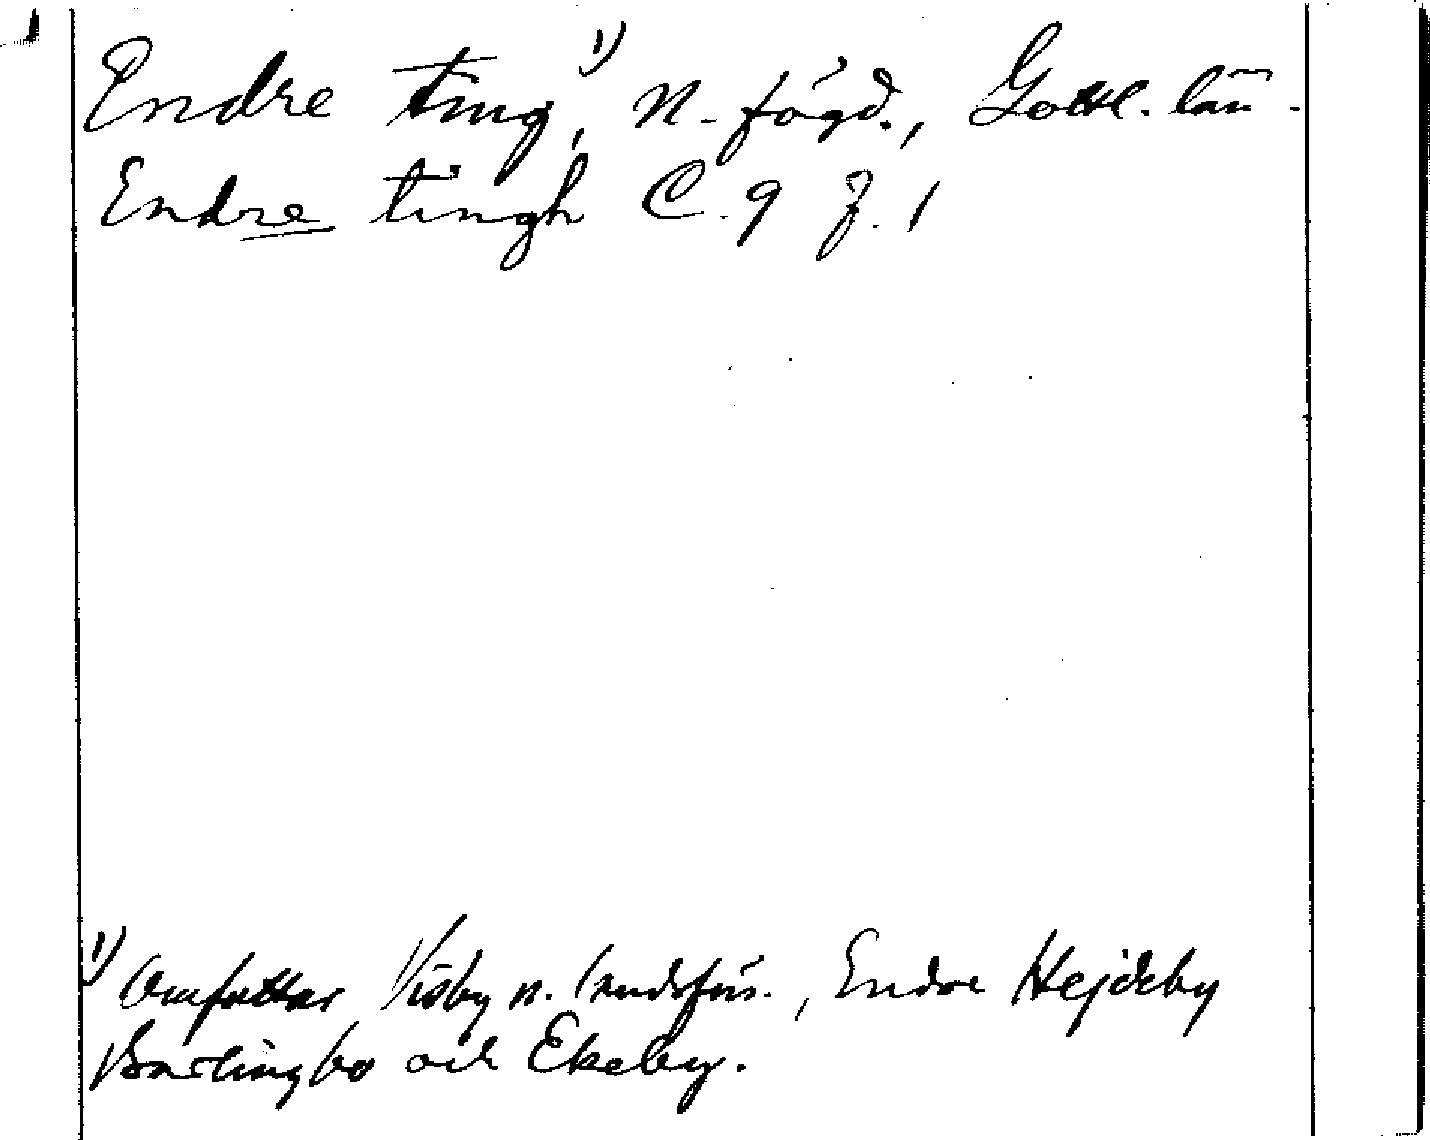 Endre ting,¹⁾ N. fögd., Gottl. län.
Endre tingh C. 9 J. 1
¹⁾ Omfattar Visby n. landsförs., Endre Hejdeby
Barlingbo och Ekeby.